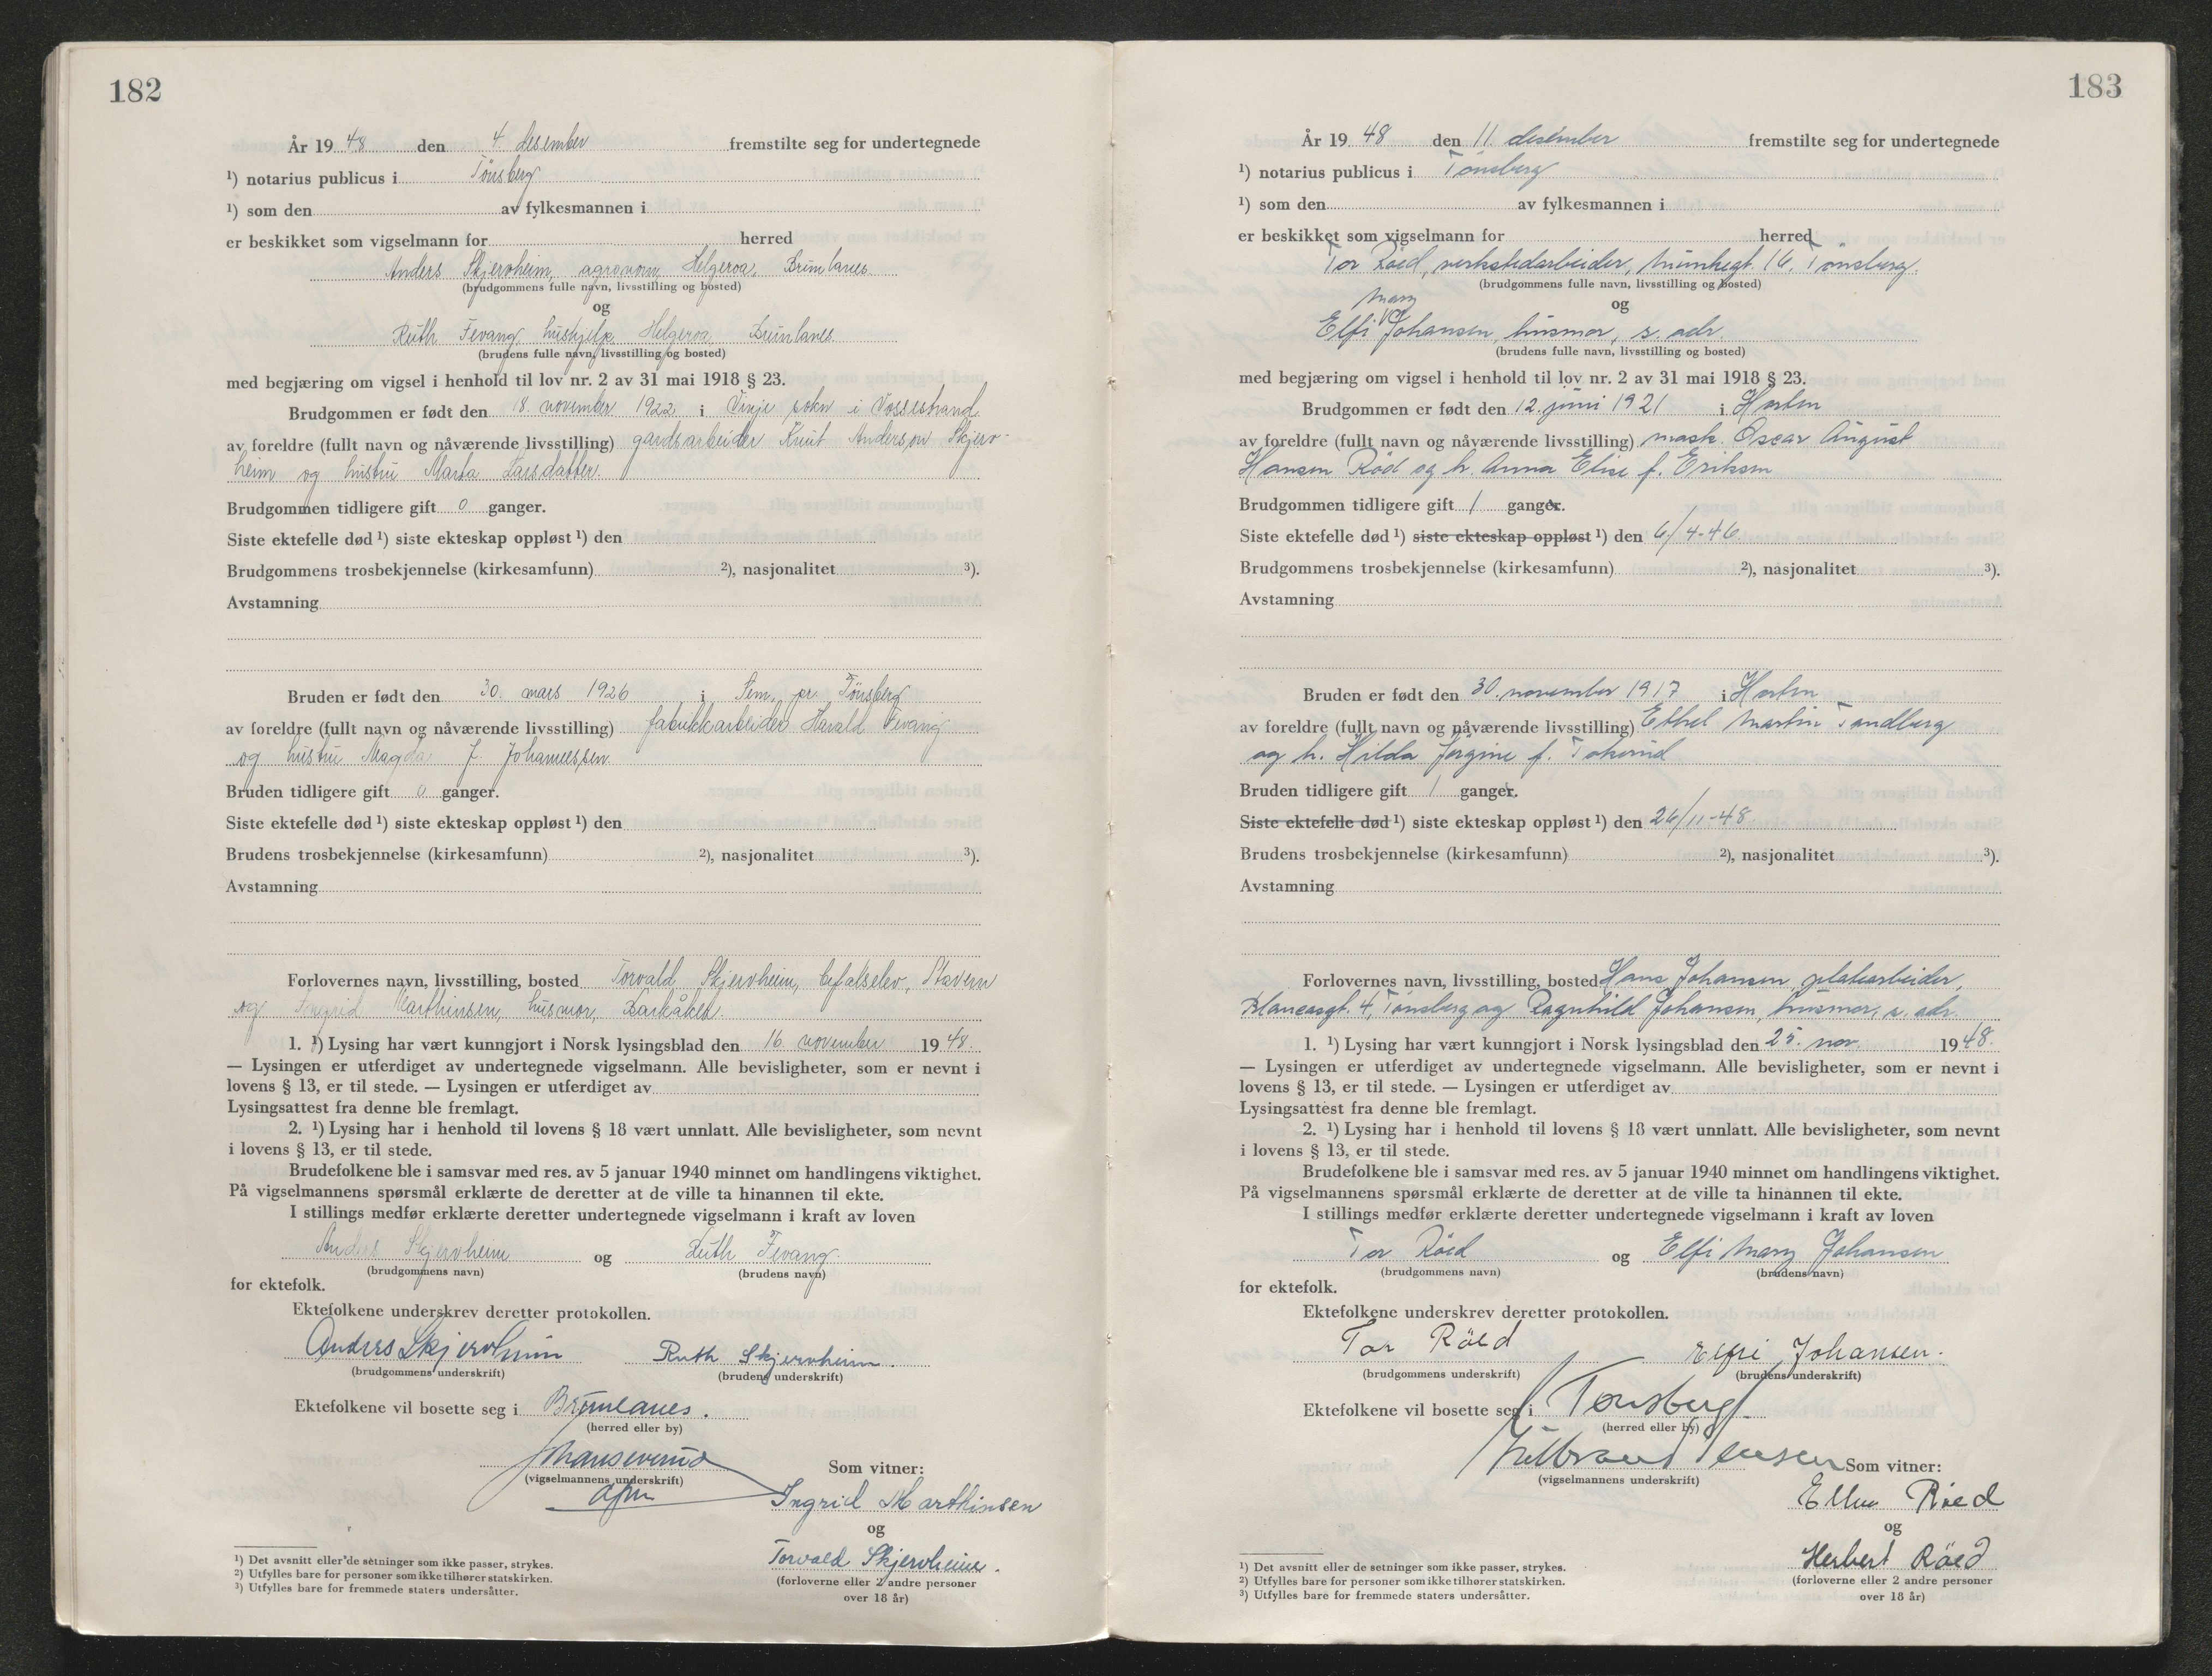 182
År 19 48 den 4. desember fremstilte seg for undertegnede
¹) notarius publicus i Tönsberg
¹) som den av fylkesmannen i
er beskikket som vigselmann for herred
Anders Skjervheim, agronom, Helgeroa, Brunlanes
(brudgommens fulle navn, livsstilling og bosted)
og
Ruth Fevang, hushjelp, Helgeroa, Brunlanes
(brudens fulle navn, livsstilling og bosted)
med begjæring om vigsel i henhold til lov nr. 2 av 31 mai 1918 § 23.
Brudgommen er født den 18. november 1922 i Vinje sokn i Vossestrand
av foreldre (fullt navn og nåværende livsstilling) gardsarbeider Knut Anderson Skjerv-
heim og hustru Marta Larsdatter.
Brudgommen tidligere gift 0 ganger.
Siste ektefelle død ¹) siste ekteskap oppløst ¹) den
Brudgommens trosbekjennelse (kirkesamfunn) ²), nasjonalitet ³).
Avstamning
Bruden er født den 30. mars 1926 i Sem, pr. Tönsberg
av foreldre (fullt navn og nåværende livsstilling) fabrikkarbeider Harald Fevang
og hustru Magda f. Johannessen.
Bruden tidligere gift 0 ganger.
Siste ektefelle død ¹) siste ekteskap oppløst ¹) den
Brudens trosbekjennelse (kirkesamfunn) ²), nasjonalitet ³).
Avstamning
Forlovernes navn, livsstilling, bosted Torvald Skjervheim, befalselev, Stavern
og Ingrid Marthinsen, husmor, Barkåker.
1. ¹) Lysing har vært kunngjort i Norsk lysingsblad den 16. november 1948.
— Lysingen er utferdiget av undertegnede vigselmann. Alle bevisligheter, som er nevnt i
lovens § 13, er til stede. — Lysingen er utferdiget av
Lysingsattest fra denne ble fremlagt.
2. ¹) Lysing har i henhold til lovens § 18 vært unnlatt. Alle bevisligheter, som nevnt
i lovens § 13, er til stede.
Brudefolkene ble i samsvar med res. av 5 januar 1940 minnet om handlingens viktighet.
På vigselmannens spørsmål erklærte de deretter at de ville ta hinannen til ekte.
I stillings medfør erklærte deretter undertegnede vigselmann i kraft av loven
Anders Skjervheim og Ruth Fevang.
(brudgommens navn) (brudens navn)
for ektefolk.
Ektefolkene underskrev deretter protokollen.
Anders Skjervheim Ruth Skjervheim.
(brudgommens underskrift) (brudens underskrift)
Ektefolkene vil bosette seg i Brunlanes.
(herred eller by)
(vigselmannens underskrift) Som vitner:
Ingrid Marthinsen
og
Torvald Skjervheim.
(forloverne eller 2 andre personer
over 18 år)
¹) Det avsnitt eller de setninger som ikke passer, strykes.
²) Utfylles bare for personer som ikke tilhører statskirken.
³) Utfylles bare for fremmede staters undersåtter.
183
År 19 48 den 11. desember fremstilte seg for undertegnede
¹) notarius publicus i Tönsberg
¹) som den av fylkesmannen i
er beskikket som vigselmann for herred
Tor Röed, verkstedarbeider, Munkegt. 16, Tönsberg.
(brudgommens fulle navn, livsstilling og bosted)
og
Mary
Elfi Johansen, husmor, s. adr.
(brudens fulle navn, livsstilling og bosted)
med begjæring om vigsel i henhold til lov nr. 2 av 31 mai 1918 § 23.
Brudgommen er født den 12. juni 1921 i Horten
av foreldre (fullt navn og nåværende livsstilling) mask. Oscar August
Hansen Röd og h. Anna Elise f. Eriksen
Brudgommen tidligere gift 1 ganger.
Siste ektefelle død ¹) siste ekteskap oppløst ¹) den 6/4-46.
Brudgommens trosbekjennelse (kirkesamfunn) ²), nasjonalitet ³).
Avstamning
Bruden er født den 30. november 1917 i Horten
av foreldre (fullt navn og nåværende livsstilling) Ethel Martin Tandberg
og h. Hilda Jörgine f. Tokerud
Bruden tidligere gift 1 ganger.
Siste ektefelle død ¹) siste ekteskap oppløst ¹) den 26/11-48
Brudens trosbekjennelse (kirkesamfunn) ²), nasjonalitet ³).
Avstamning
Forlovernes navn, livsstilling, bosted Hans Johansen, platearbeider,
4, Tönsberg og Ragnhild Johansen, husmor, s. adr.
1. ¹) Lysing har vært kunngjort i Norsk lysingsblad den 25. nov. 1948.
— Lysingen er utferdiget av undertegnede vigselmann. Alle bevisligheter, som er nevnt i
lovens § 13, er til stede. — Lysingen er utferdiget av
Lysingsattest fra denne ble fremlagt.
2. ¹) Lysing har i henhold til lovens § 18 vært unnlatt. Alle bevisligheter, som nevnt
i lovens § 13, er til stede.
Brudefolkene ble i samsvar med res. av 5 januar 1940 minnet om handlingens viktighet.
På vigselmannens spørsmål erklærte de deretter at de ville ta hinannen til ekte.
I stillings medfør erklærte deretter undertegnede vigselmann i kraft av loven
Tor Röed og Elfi Mary Johansen
(brudgommens navn) (brudens navn)
for ektefolk.
Ektefolkene underskrev deretter protokollen.
Tor Röed Elfri Johansen.
(brudgommens underskrift) (brudens underskrift)
Ektefolkene vil bosette seg i Tønsberg
(herred eller by)
(vigselmannens underskrift) Som vitner:
Ellen Röed
og
Herbert Röed
(forloverne eller 2 andre personer
over 18 år)
¹) Det avsnitt eller de setninger som ikke passer, strykes.
²) Utfylles bare for personer som ikke tilhører statskirken.
³) Utfylles bare for fremmede staters undersåtter.